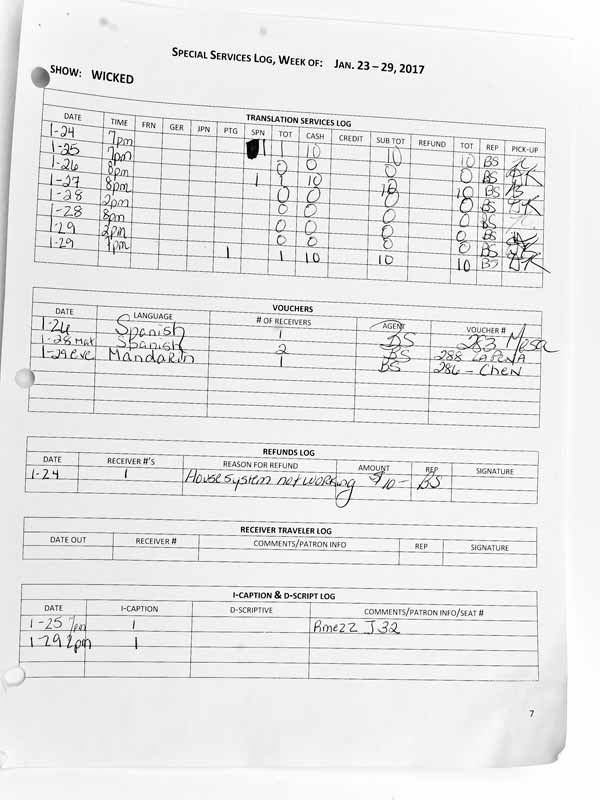 SPECIAL SERVICES LOG, WEEK OF: JAN. 23 – 29, 2017
SHOW: WICKED
TRANSLATION SERVICES LOG
DATE TIME FRN GER JPN PTG SPN TOT CASH CREDIT SUB TOT REFUND TOT REP PICK-UP
1-24 7pm 1 1 10 10 10 BS
1-25 7pm 0 0 0 0 BS
1-26 8pm 1 1 10 10 10 BS
1-27 8pm 0 0 0 0 BS
1-28 2pm 0 0 0 0 BS
1-28 8pm 0 0 0 0 BS
1-29 2pm 0 0 0 0 BS
1-29 7pm 1 1 10 10 10 BS
VOUCHERS
DATE LANGUAGE # OF RECEIVERS AGENT VOUCHER #
1-26 Spanish 1 BS 283 Mesa
1-28 Mat Spanish 2 BS 288 LAPENA
1-29 eve Mandarin 1 BS 286 - Chen
REFUNDS LOG
DATE RECEIVER #'S REASON FOR REFUND AMOUNT REP SIGNATURE
1-24 1 House system not working $10- BS
RECEIVER TRAVELER LOG
DATE OUT RECEIVER # COMMENTS/PATRON INFO REP SIGNATURE
I-CAPTION & D-SCRIPT LOG
DATE I-CAPTION D-SCRIPTIVE COMMENTS/PATRON INFO/SEAT #
1-25 7pm 1 Rmezz J32
1-29 2pm 1
7